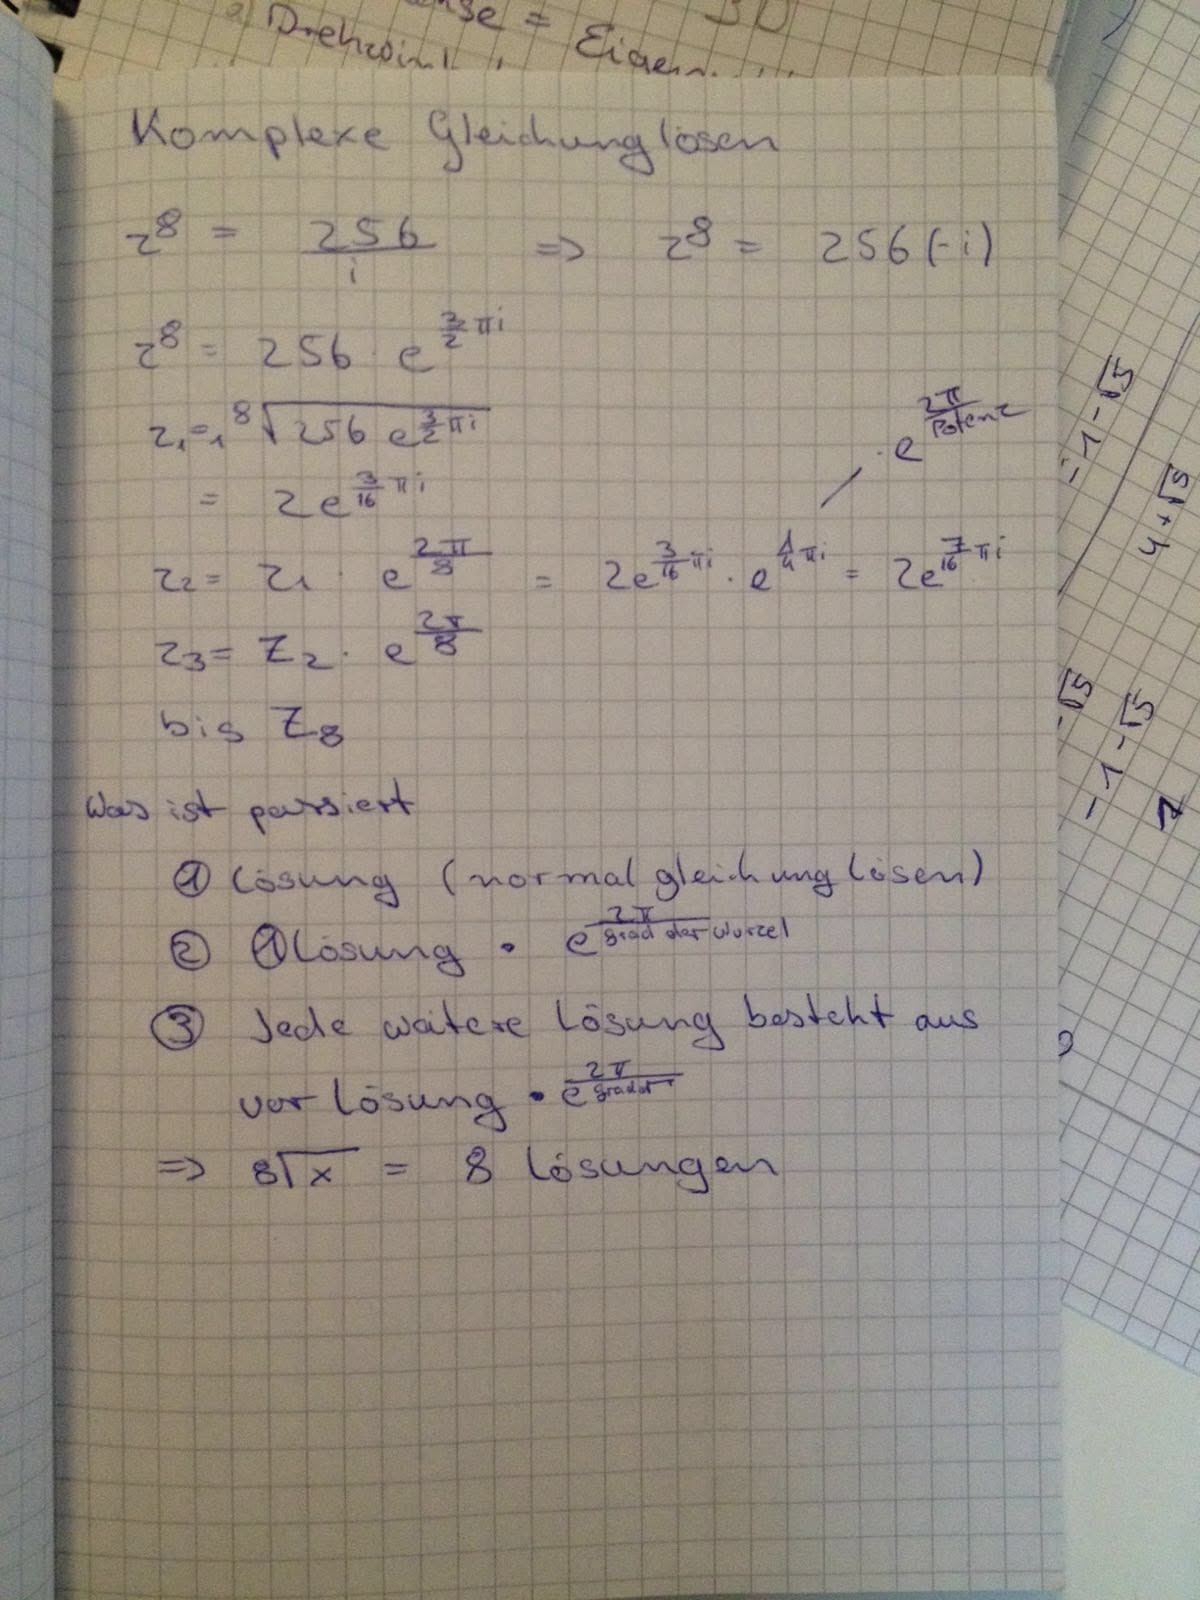 ense = 3D
a) Drehwin
Komplexe Gleichung lösen
z⁸ = 256/i => z⁸ = 256 (-i)
z⁸ = 256 · e^(3/2 πi)
z₁ = ⁸√(256 e^(3/2 πi))
· e^(2π/Potenz)
= 2e^(3/16 πi)
z₂ = z₁ · e^(2π/8) = 2e^(3/16 πi) · e^(1/4 πi) = 2e^(7/16 πi)
z₃ = z₂ · e^(2π/8)
bis z₈
Was ist passiert
① Lösung (normal gleichung lösen)
② ①Lösung · e^(2π/grad der Wurzel)
③ Jede weitere Lösung besteht aus
vor lösung · e^(2π/grad)
=> 8√x = 8 Lösungen
-1-√5
4+√5
-√5
-1-√5